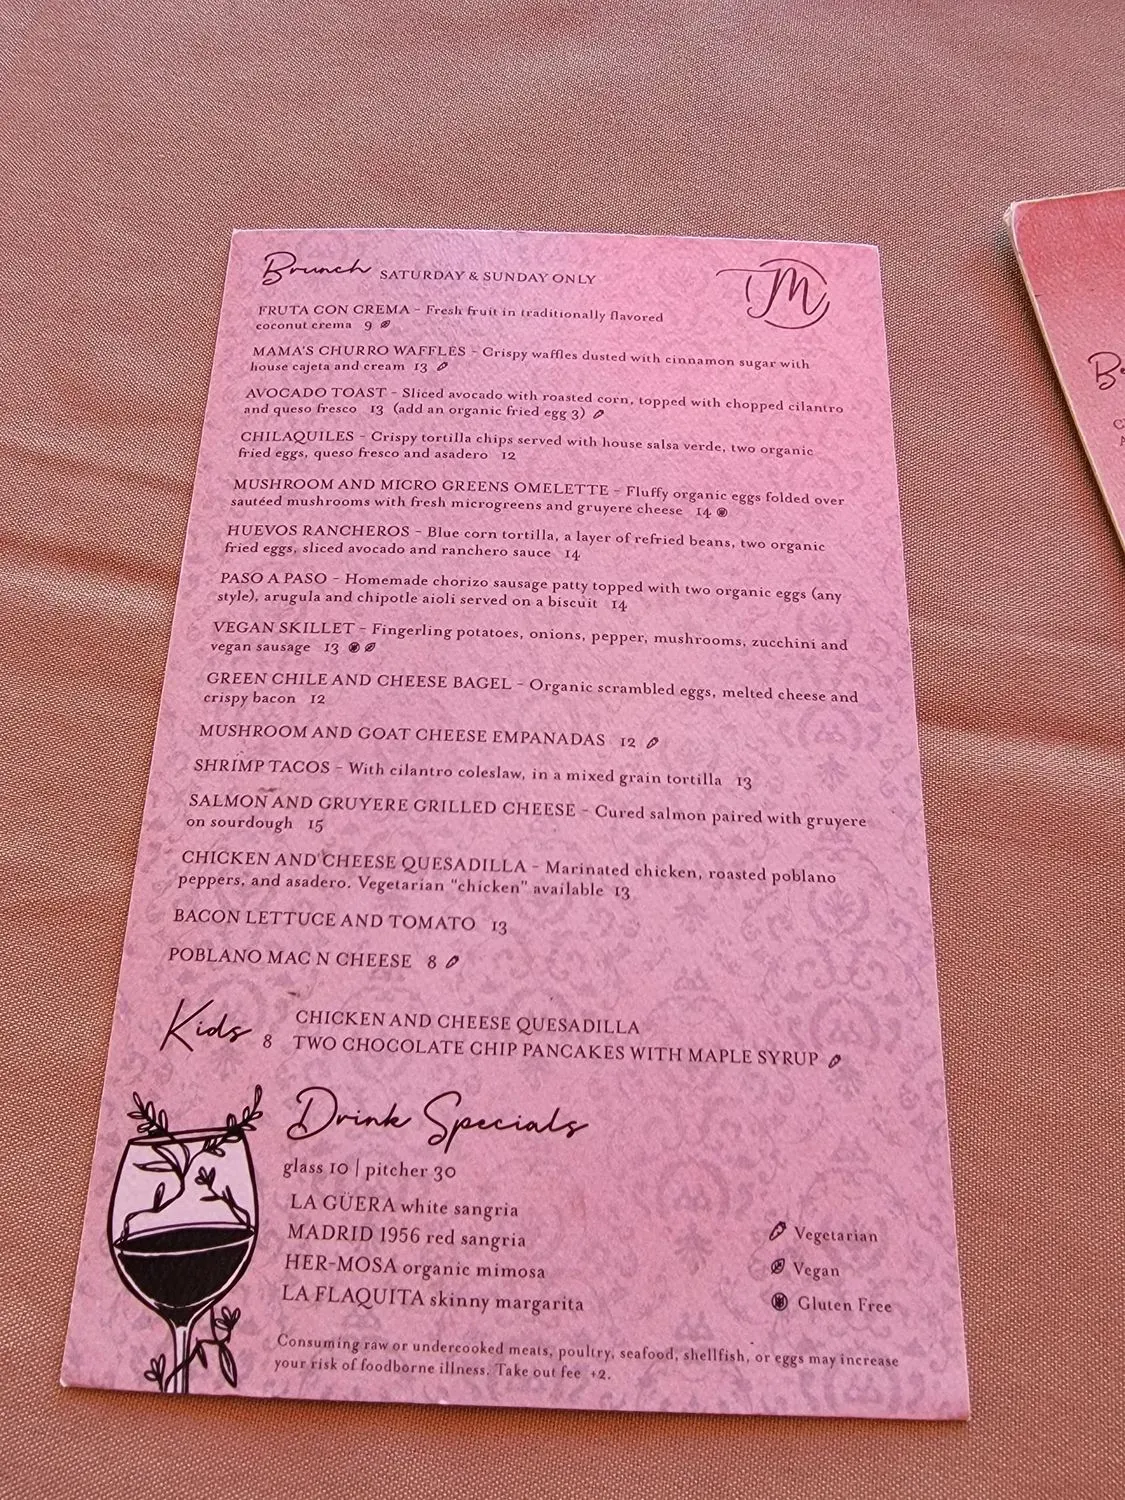 Brunch SATURDAY & SUNDAY ONLY
M
FRUTA CON CREMA - Fresh fruit in traditionally flavored
coconut crema 9
MAMA'S CHURRO WAFFLES - Crispy waffles dusted with cinnamon sugar with
house cajeta and cream 13
AVOCADO TOAST - Sliced avocado with roasted corn, topped with chopped cilantro
and queso fresco 13 (add an organic fried egg 3)
CHILAQUILES - Crispy tortilla chips served with house salsa verde, two organic
fried eggs, queso fresco and asadero 12
MUSHROOM AND MICRO GREENS OMELETTE - Fluffy organic eggs folded over
sautéed mushrooms with fresh microgreens and gruyere cheese 14
HUEVOS RANCHEROS - Blue corn tortilla, a layer of refried beans, two organic
fried eggs, sliced avocado and ranchero sauce 14
PASO A PASO - Homemade chorizo sausage patty topped with two organic eggs (any
style), arugula and chipotle aioli served on a biscuit 14
VEGAN SKILLET - Fingerling potatoes, onions, pepper, mushrooms, zucchini and
vegan sausage 13
GREEN CHILE AND CHEESE BAGEL - Organic scrambled eggs, melted cheese and
crispy bacon 12
MUSHROOM AND GOAT CHEESE EMPANADAS 12
SHRIMP TACOS - With cilantro coleslaw, in a mixed grain tortilla 13
SALMON AND GRUYERE GRILLED CHEESE - Cured salmon paired with gruyere
on sourdough 15
CHICKEN AND CHEESE QUESADILLA - Marinated chicken, roasted poblano
peppers, and asadero. Vegetarian "chicken" available 13
BACON LETTUCE AND TOMATO 13
POBLANO MAC N CHEESE 8
Kids 8 CHICKEN AND CHEESE QUESADILLA
TWO CHOCOLATE CHIP PANCAKES WITH MAPLE SYRUP
Drink Specials
glass 10 | pitcher 30
LA GÜERA white sangria
MADRID 1956 red sangria
HER-MOSA organic mimosa
LA FLAQUITA skinny margarita
Vegetarian
Vegan
Gluten Free
Consuming raw or undercooked meats, poultry, seafood, shellfish, or eggs may increase
your risk of foodborne illness. Take out fee +2.